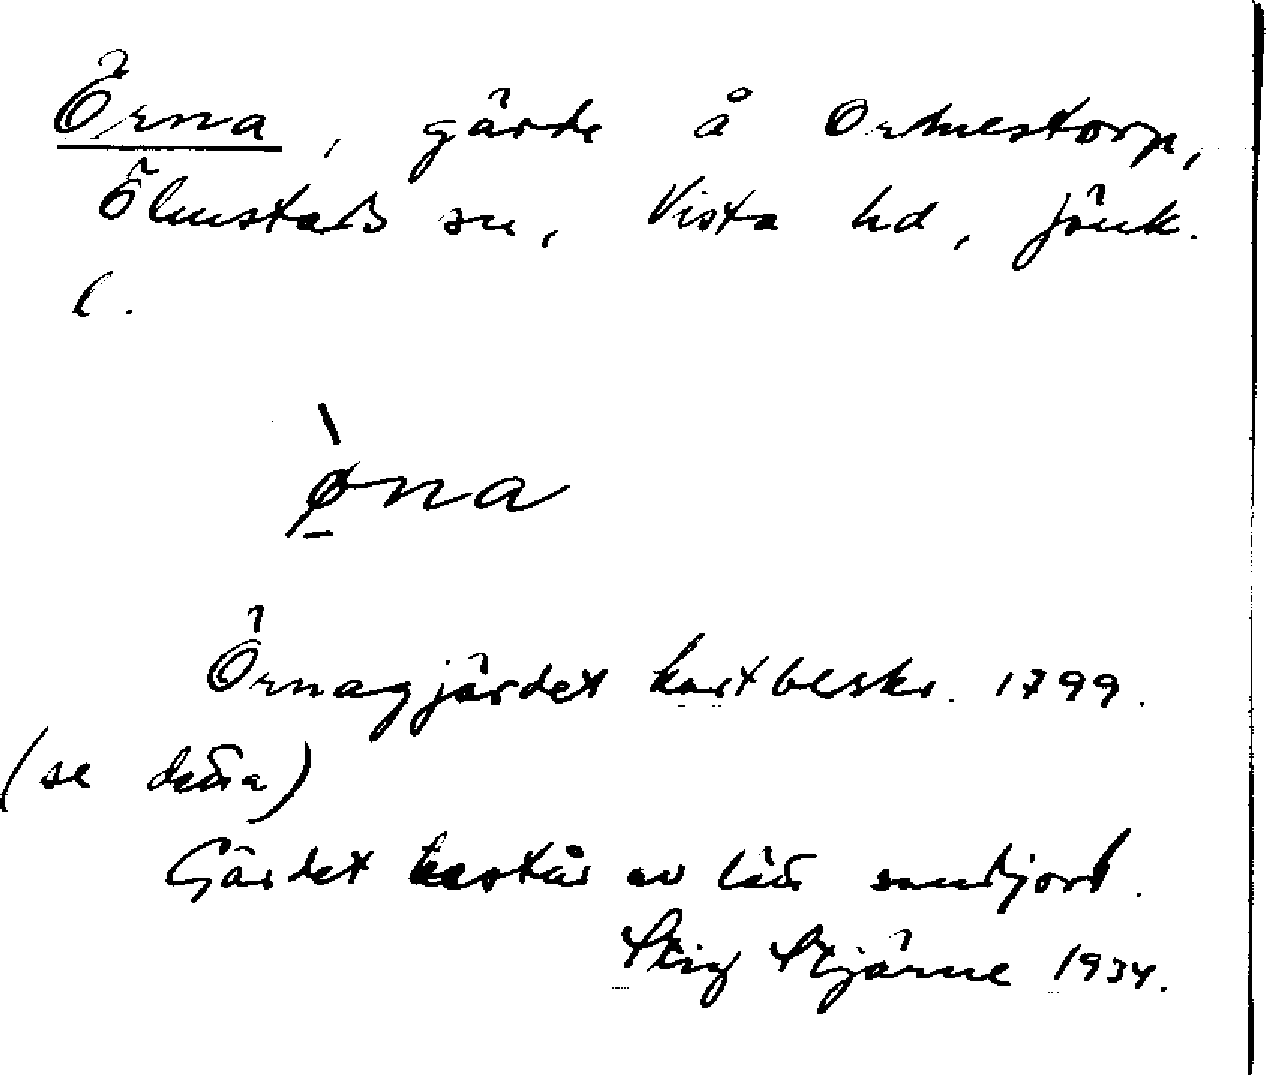 Örna, gärde å Ormestorp,
Ölmstads sn, Vista hd, Jönk.
l.
ø̀na
Örnagjärdet kartbeskr. 1799.
(se denna)
Gärdet består av lätt sandjord.
Stig Stjärne 1934.